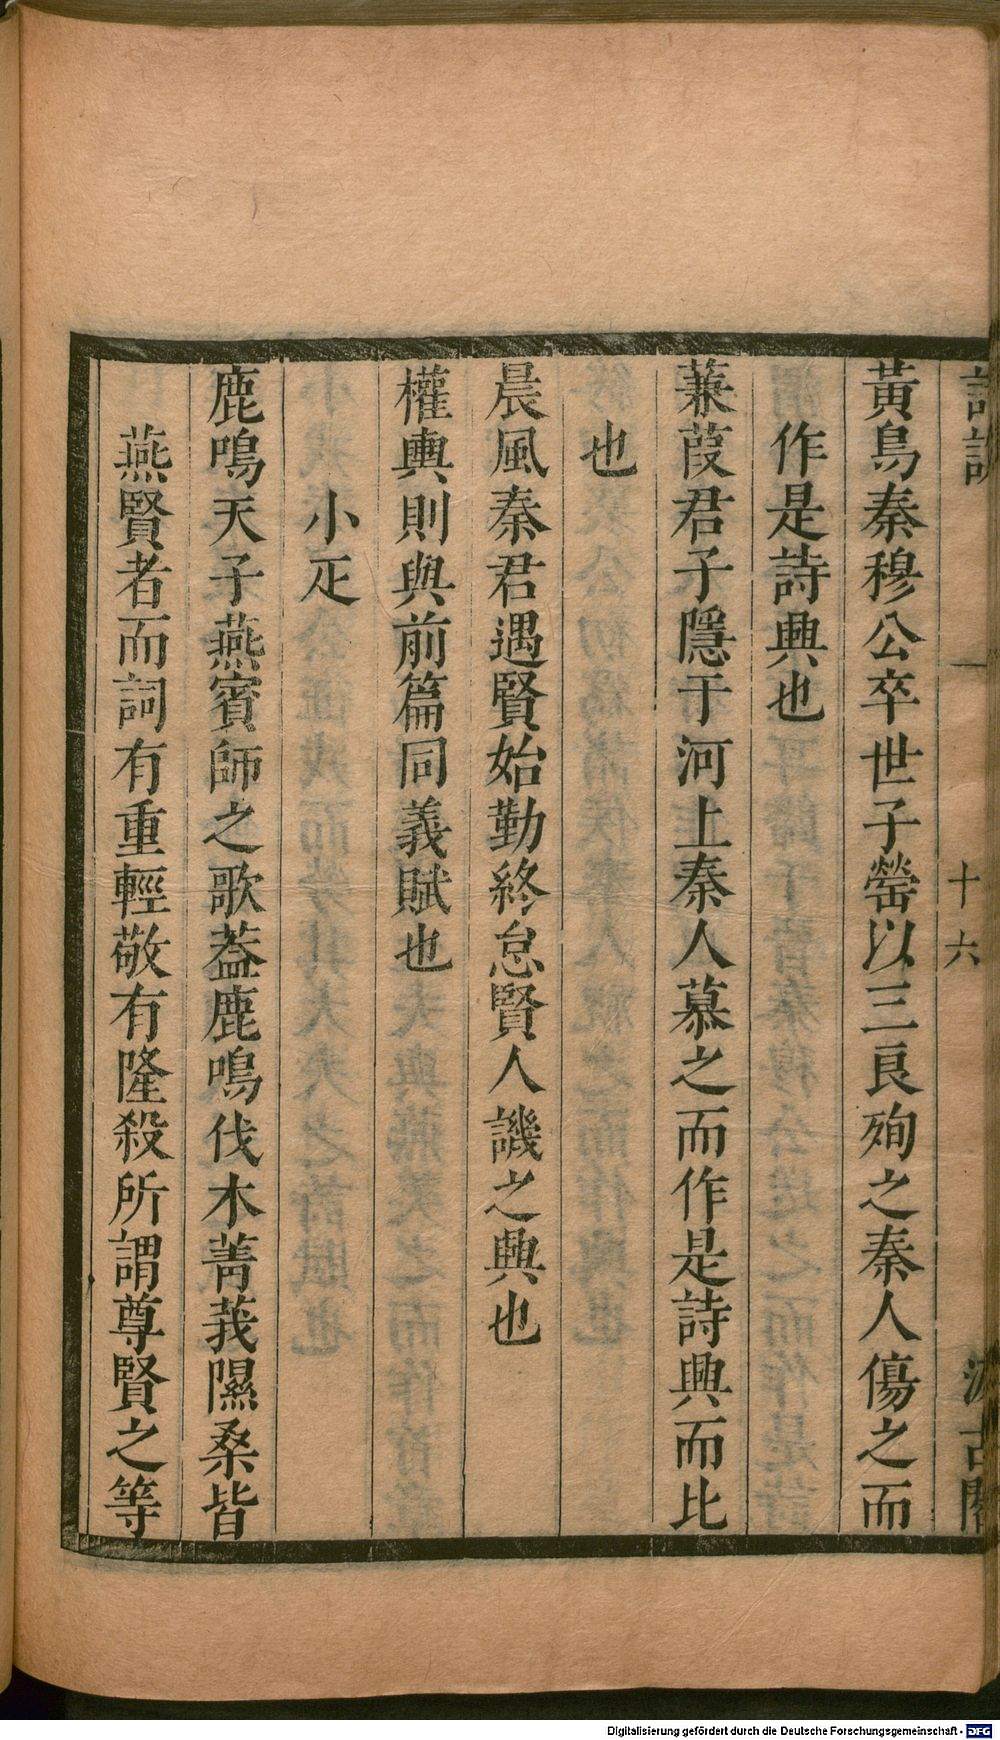 詩說
一
十六
汲古閣
黃鳥秦穆公卒世子罃以三良殉之秦人傷之而
作是詩興也
蒹葭君子隱于河上秦人慕之而作是詩興而比
也
晨風秦君遇賢始勤終怠賢人譏之興也
權輿則與前篇同義賦也
小疋
鹿鳴天子燕賓師之歌葢鹿鳴伐木菁莪隰桑皆
燕賢者而詞有重輕敬有隆殺所謂尊賢之等
Digitalisierung gefördert durch die Deutsche Forschungsgemeinschaft - DFG